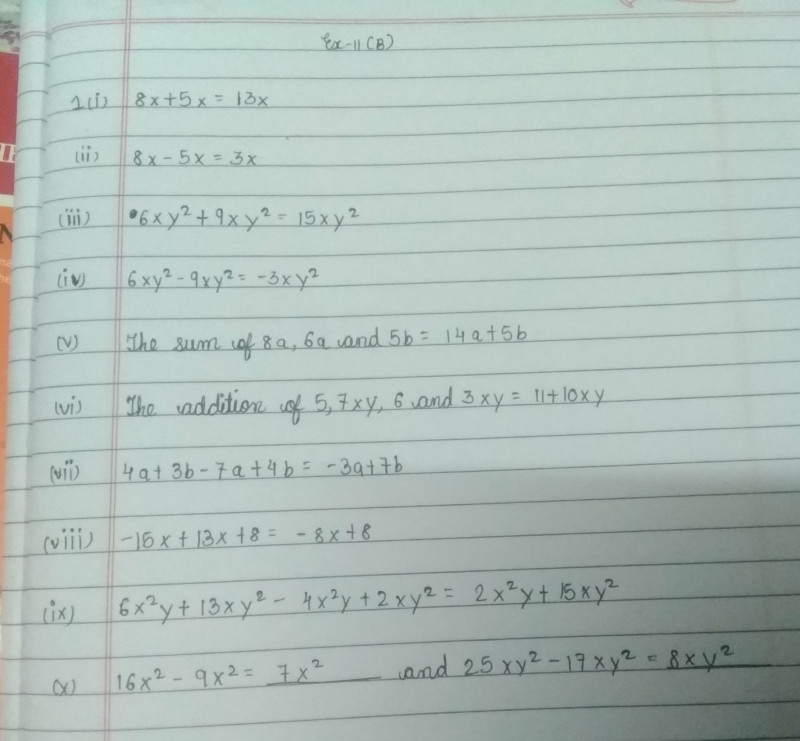 Ex-11(B)
1(i) 8x+5x = 13x
(ii) 8x - 5x = 3x
(iii) 6xy² + 9xy² = 15xy²
(iv) 6xy² - 9xy² = -3xy²
(v) The sum of 8a, 6a and 5b = 14a+5b
(vi) The addition of 5, 7xy, 6 and 3xy = 11+10xy
(vii) 4a+3b-7a+4b = -3a+7b
(viii) -15x+13x+8 = -8x+8
(ix) 6x²y+13xy² - 4x²y+2xy² = 2x²y+15xy²
(x) 16x² - 9x² = 7x² and 25xy² - 17xy² = 8xy²